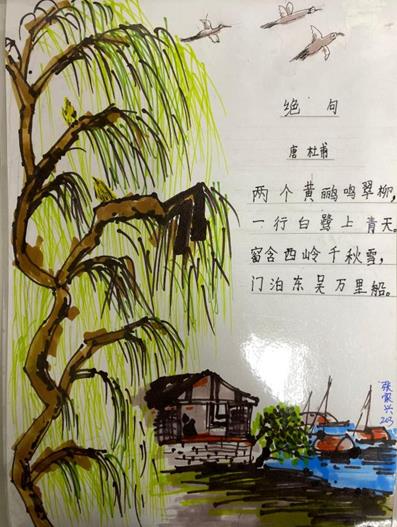 绝 句
唐 杜甫
两个黄鹂鸣翠柳,
一行白鹭上青天。
窗含西岭千秋雪,
门泊东吴万里船。
203